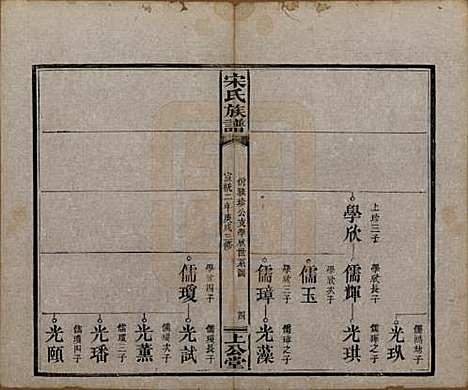 光玖
上珍三子
學欣
學欣長子
儒輝
儒輝之子
光琪
學欣次子
儒玉
學欣三子
儒璋
儒璋之子
光藻
宋氏族譜
珍公支學欣世系圖
四
宣統二年庚戌三修
上公堂
學欣四子
儒瓊
儒瓊長子
光試
儒瓊次子
光薰
儒瓊三子
光璠
儒瓊四子
光頤